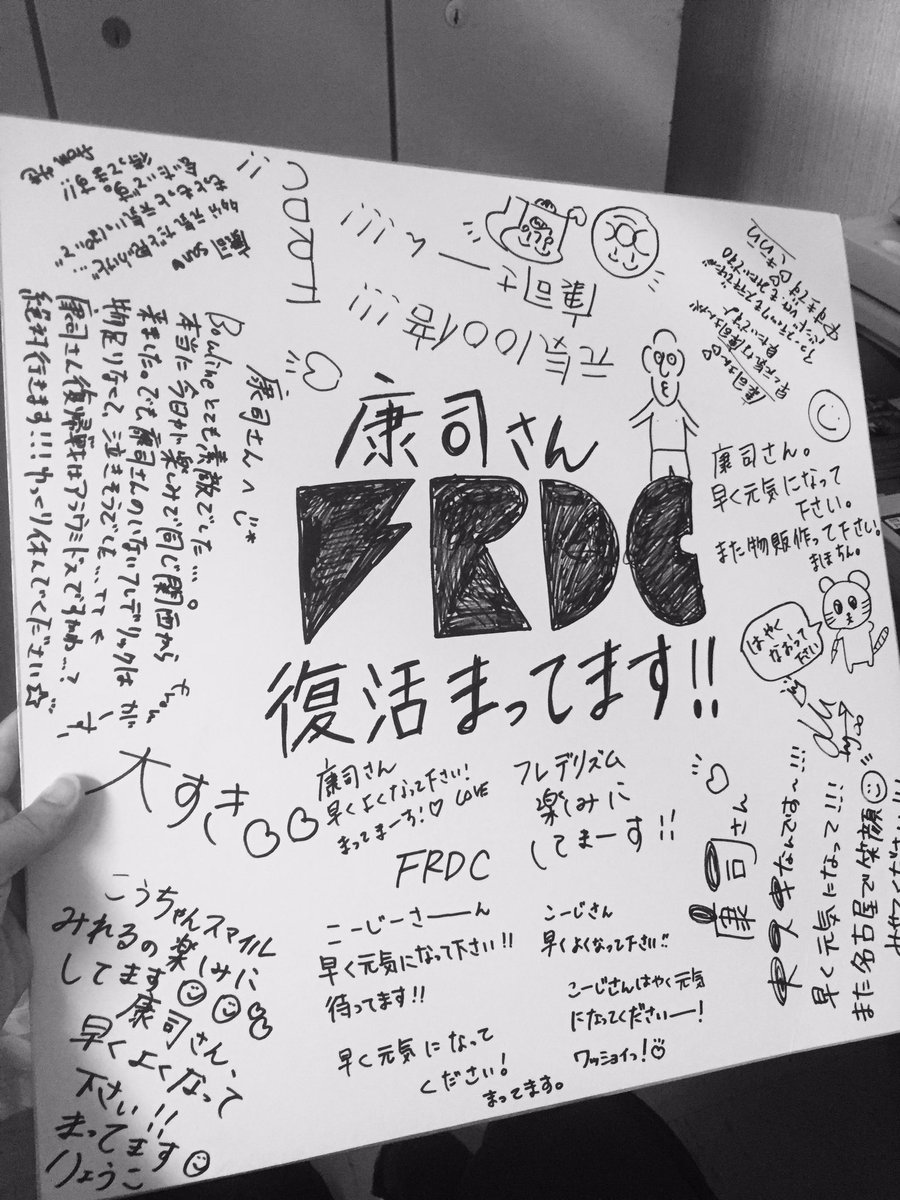 康司さん
FRDC
復活まってます!!
康司さん。
早く元気になって
下さい。
また物販作って下さい!
まほちん。
はやく
なおって
ださい
康司さんへ
Burlineとても素敵でした…
本当に今日が楽しみで同じ関西から
来ましたっでも康司さんのいないフレデリックは
物足りなくて泣きそうでした…
康司さん復帰戦は
絶対行きます!!! ゆっくり休んでください☆
大すき♡♡
元気100倍!!!
康司さーん!!!
FRDC!!!
康司san
from
待ってます!!
康司さん
早くよくなって下さい!
まってまーす!♡ LOVE
フレデリズム
楽しみに
してまーす!!
FRDC
こーじーさーーん
早く元気になって下さい!!
待ってます!!
こーじさん
早くよくなって下さい!!
早く元気になって
ください!
まってます。
こーじさんはやく元気
になってくださいー!
ワッショイっ!♡
こうちゃんスマイル
みれるの楽しみに
してます
康司さん、
早くよくなって
下さい!!
まってます
りょうこ
康司さん
なんです〜!!!
早く元気になって!!!
また名古屋で笑顔